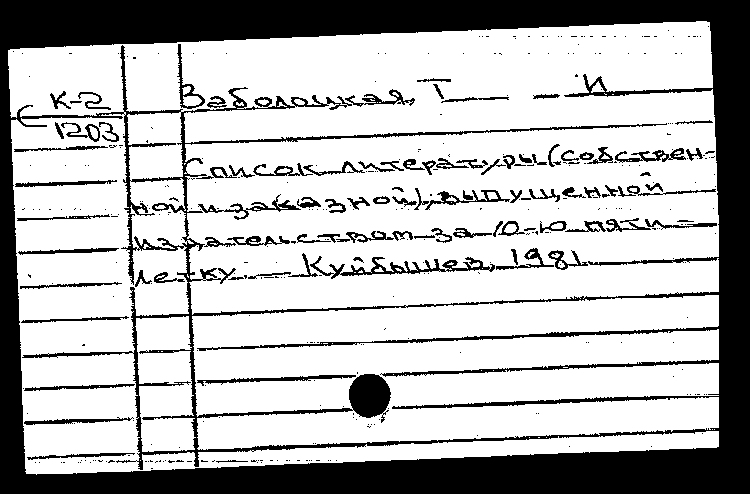 К-2
1203
Заболоцкая, Т И
Список литературы (собствен-
ной и заказной), выпущенной
издательством за 10-ю пяти-
летку. — Куйбышев, 1981.